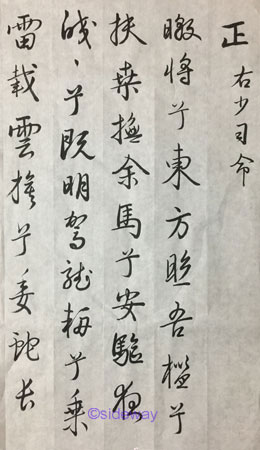 正 右少司命
暾将兮東方照吾檻兮
扶桒撫余馬兮安驅夜
皎〻兮既明駕龍輈兮乘
雷載雲旗兮委蛇长
©sideway